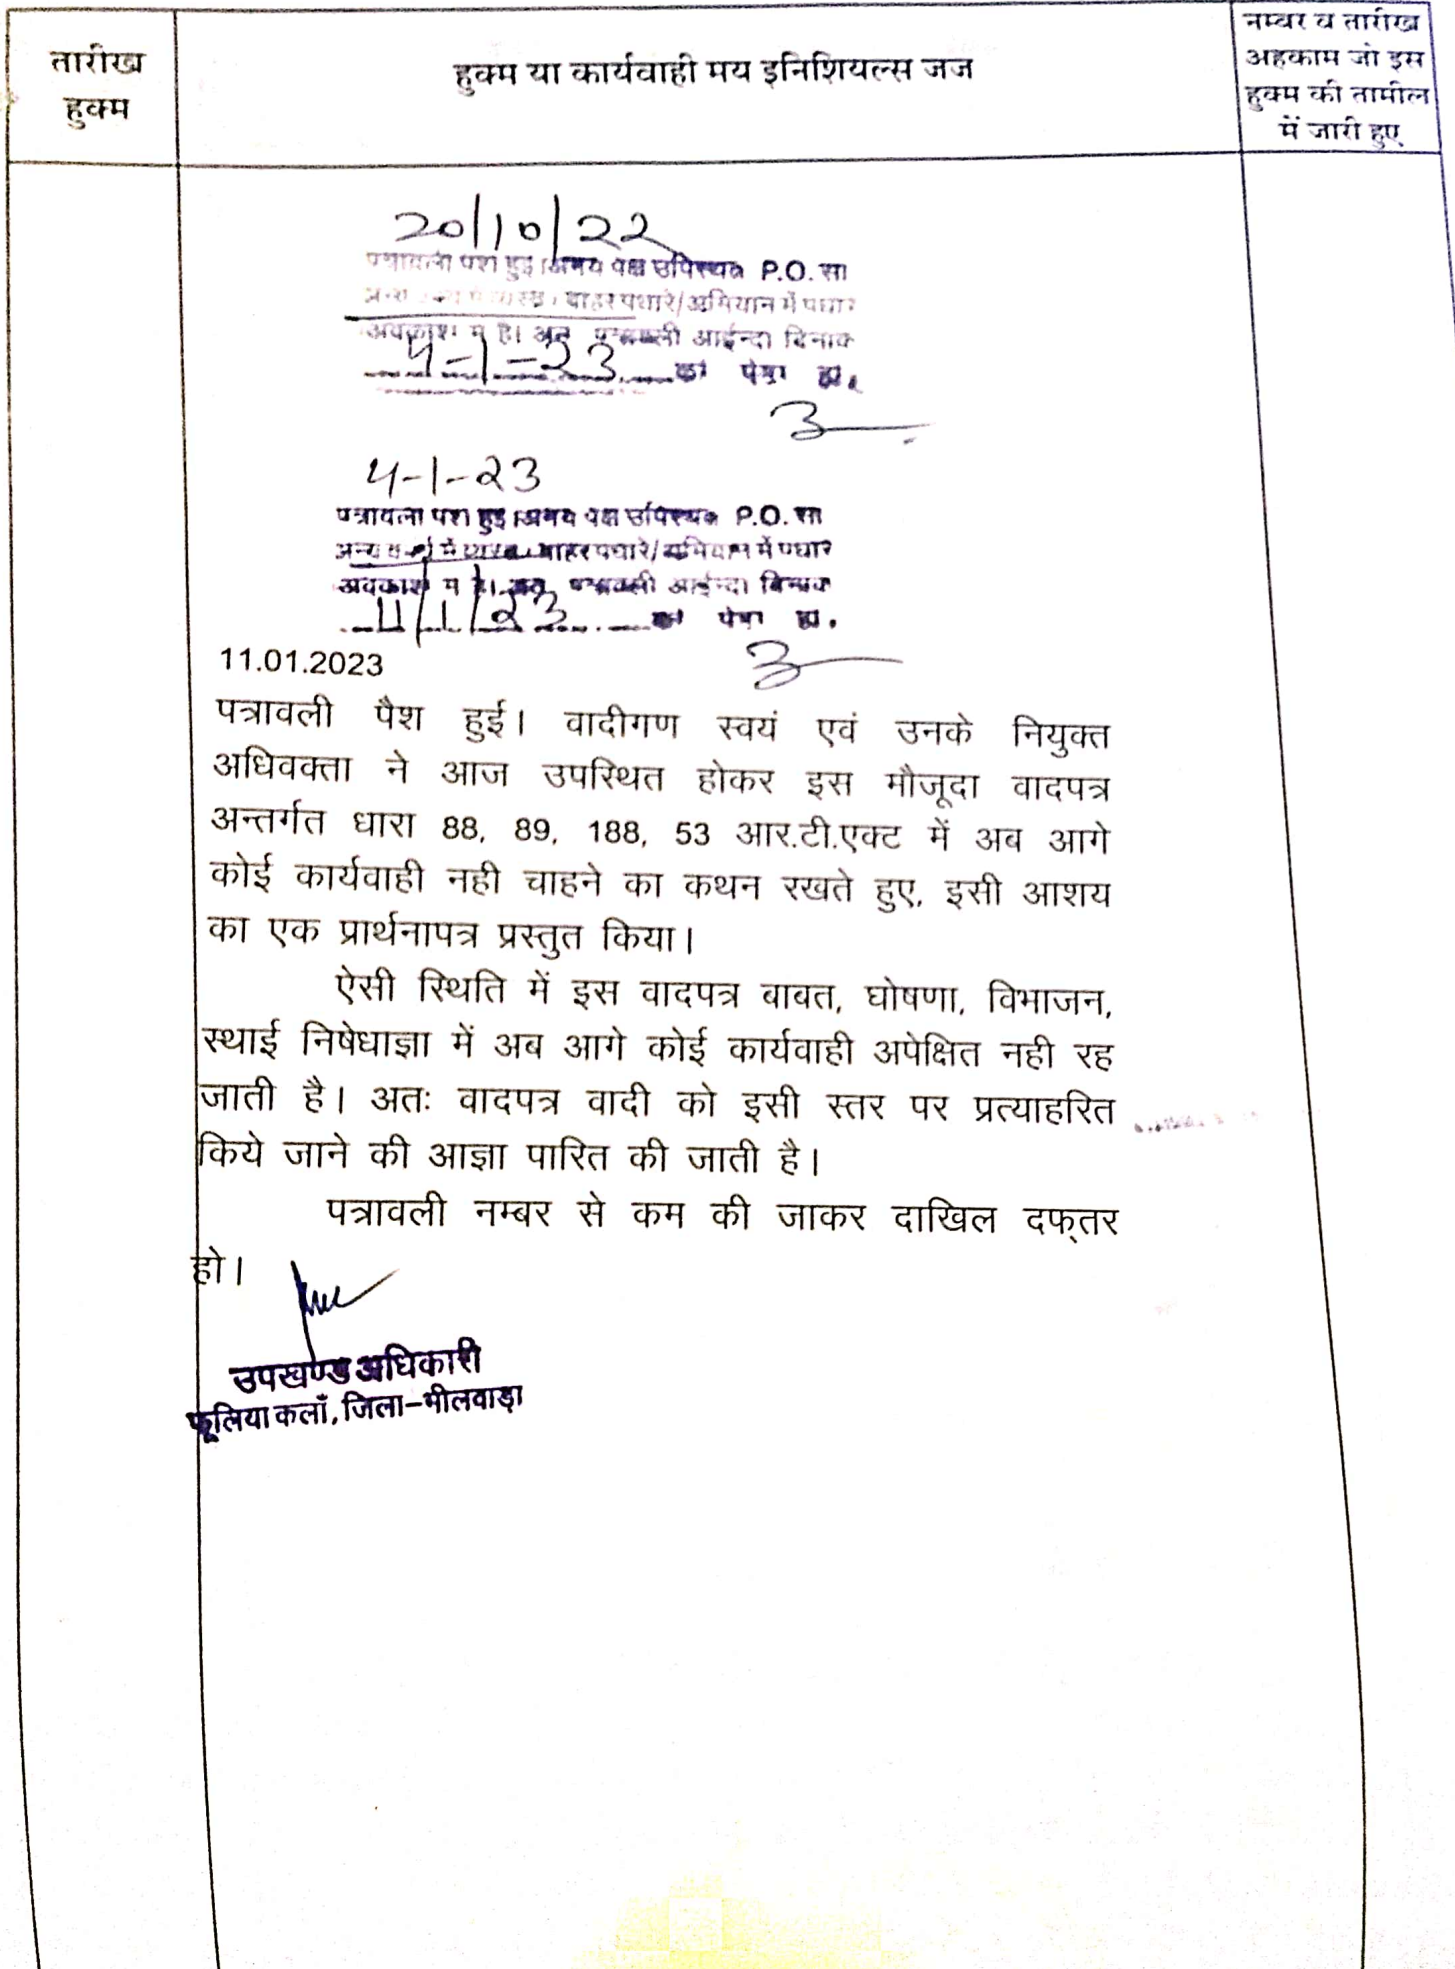 तारीख
हुक्म
हुक्म या कार्यवाही मय इनिशियल्स जज
नम्बर व तारीख
अहकाम जो इस
हुक्म की तामील
में जारी हुए
20/10/22
पत्रावली पेश हुई। उभय पक्ष उपस्थित P.O. सा
बाहर पधारे/अभियान में पधारे
अवकाश में है। अतः पत्रावली आईन्दा दिनांक
4-1-23 को पेश हो.
4-1-23
पत्रावली पेश हुई। उभय पक्ष उपस्थित P.O. सा
अन्य कार्य में व्यस्त बाहर पधारे/अभियान में पधारे
अवकाश में है। अतः पत्रावली आईन्दा दिनांक
11/1/23 को पेश हो.
11.01.2023
पत्रावली पैश हुई। वादीगण स्वयं एवं उनके नियुक्त
अधिवक्ता ने आज उपस्थित होकर इस मौजूदा वादपत्र
अन्तर्गत धारा 88, 89, 188, 53 आर.टी.एक्ट में अब आगे
कोई कार्यवाही नही चाहने का कथन रखते हुए, इसी आशय
का एक प्रार्थनापत्र प्रस्तुत किया।
ऐसी स्थिति में इस वादपत्र बावत, घोषणा, विभाजन,
स्थाई निषेधाज्ञा में अब आगे कोई कार्यवाही अपेक्षित नही रह
जाती है। अतः वादपत्र वादी को इसी स्तर पर प्रत्याहरित
किये जाने की आज्ञा पारित की जाती है।
पत्रावली नम्बर से कम की जाकर दाखिल दफ्तर
हो।
उपखण्ड अधिकारी
फूलिया कलाँ, जिला-भीलवाड़ा